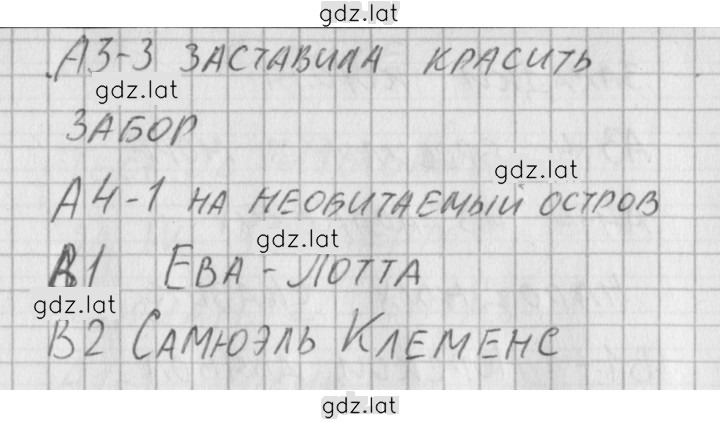 gdz.lat
А3-3 ЗАСТАВИЛА КРАСИТЬ
gdz.lat
ЗАБОР
gdz.lat
А4-1 НА НЕОБИТАЕМЫЙ ОСТРОВ
gdz.lat
В1 ЕВА-ЛОТТА
gdz.lat
В2 САМЮЭЛЬ КЛЕМЕНС
gdz.lat